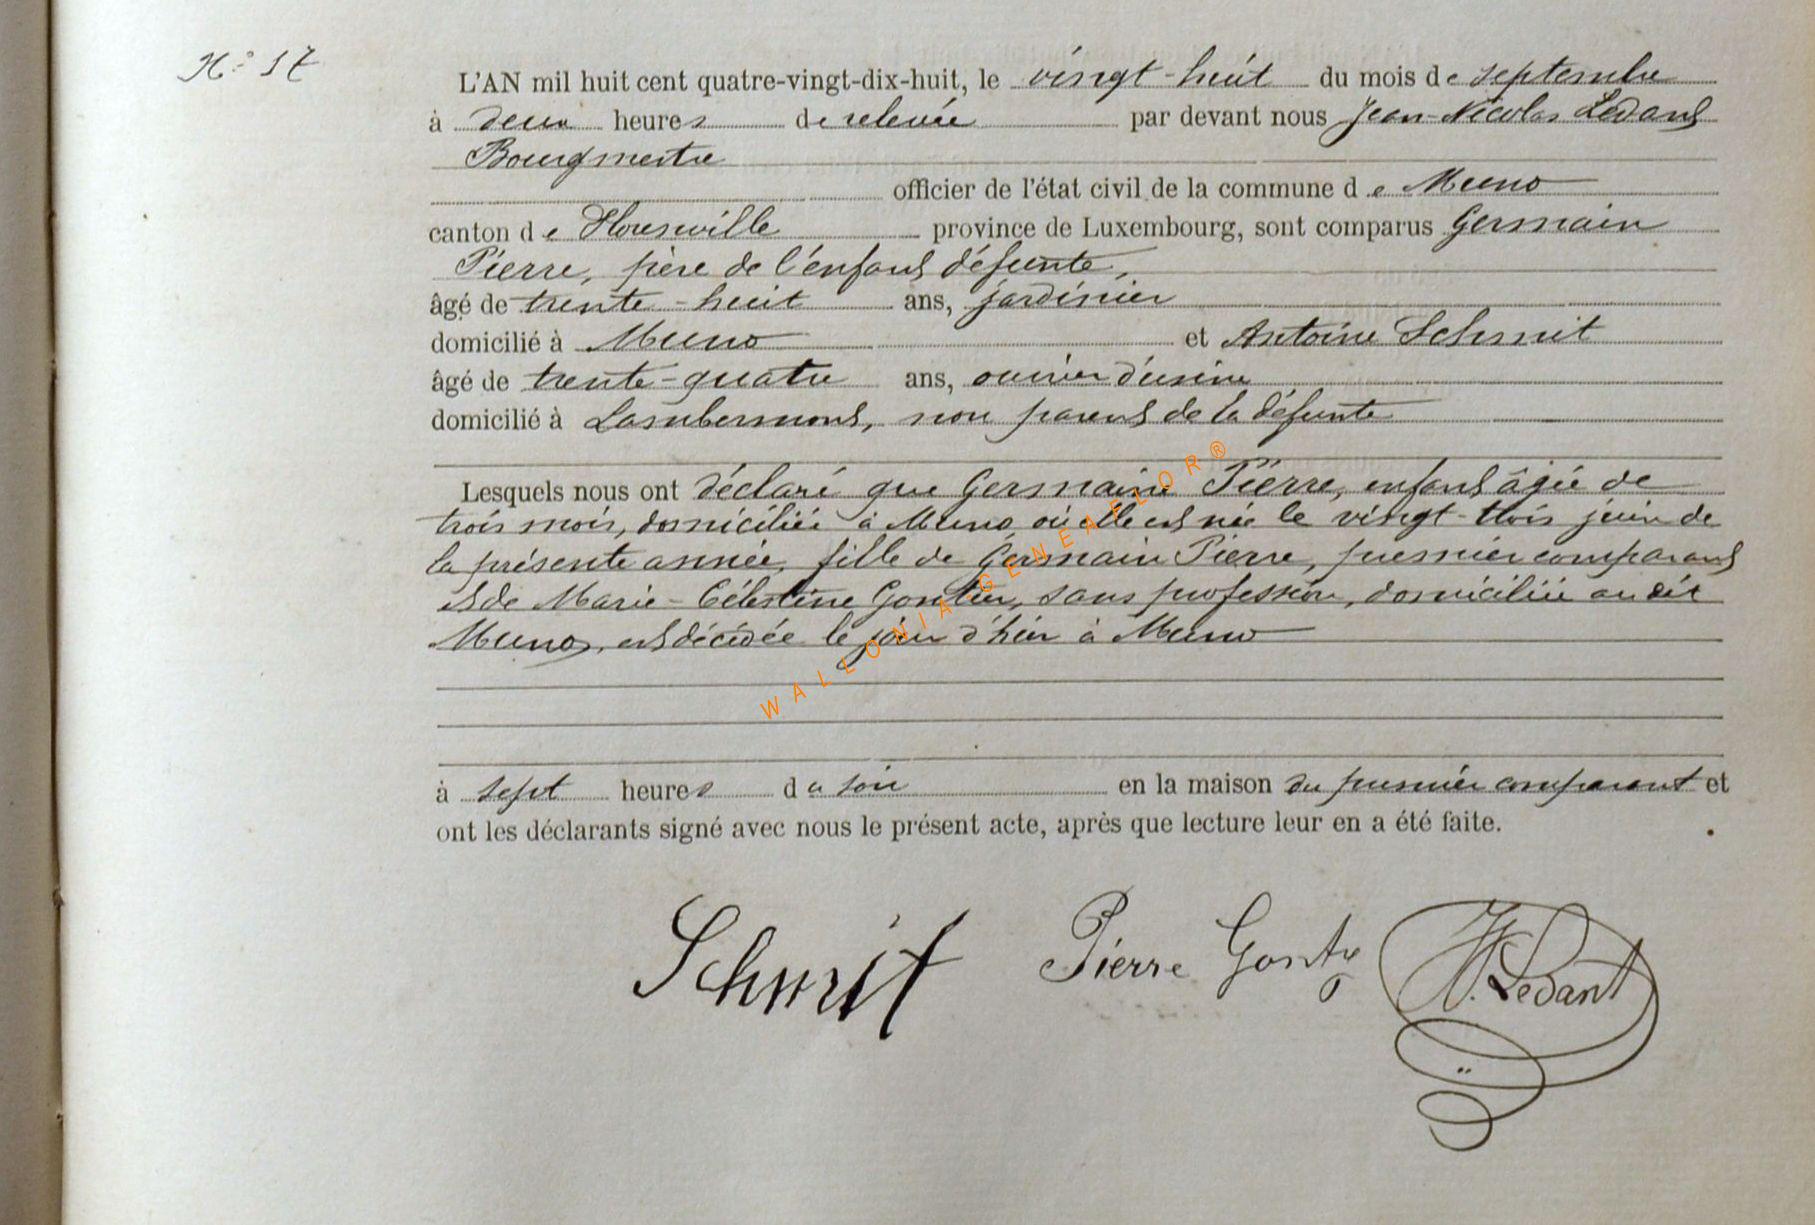 N° 17
L'AN mil huit cent quatre-vingt-dix-huit, le vingt-huit du mois de septembre
à deux heures de relevée par devant nous Jean-Nicolas Ledant
Bourgmestre
officier de l'état civil de la commune de Muno
canton de Florenville province de Luxembourg, sont comparus Germain
Pierre, père de l'enfant défunte,
âgé de trente-huit ans, jardinier
domicilié à Muno et Antoine Schmit
âgé de trente-quatre ans, ouvrier d'usine
domicilié à Lambermont, non parent de la défunte
Lesquels nous ont déclaré que Germaine Pierre, enfant âgée de
trois mois, domiciliée à Muno où elle est née le vingt-trois juin de
la présente année, fille de Germain Pierre, premier comparant
et de Marie-Célestine Gontier, sans profession, domiciliée au dit
Muno, est décédée le jour d'hier à Muno
à sept heures du soir en la maison du premier comparant et
ont les déclarants signé avec nous le présent acte, après que lecture leur en a été faite.
Schmit Pierre JN. Ledant
WALLONIA GENEAFLOR®